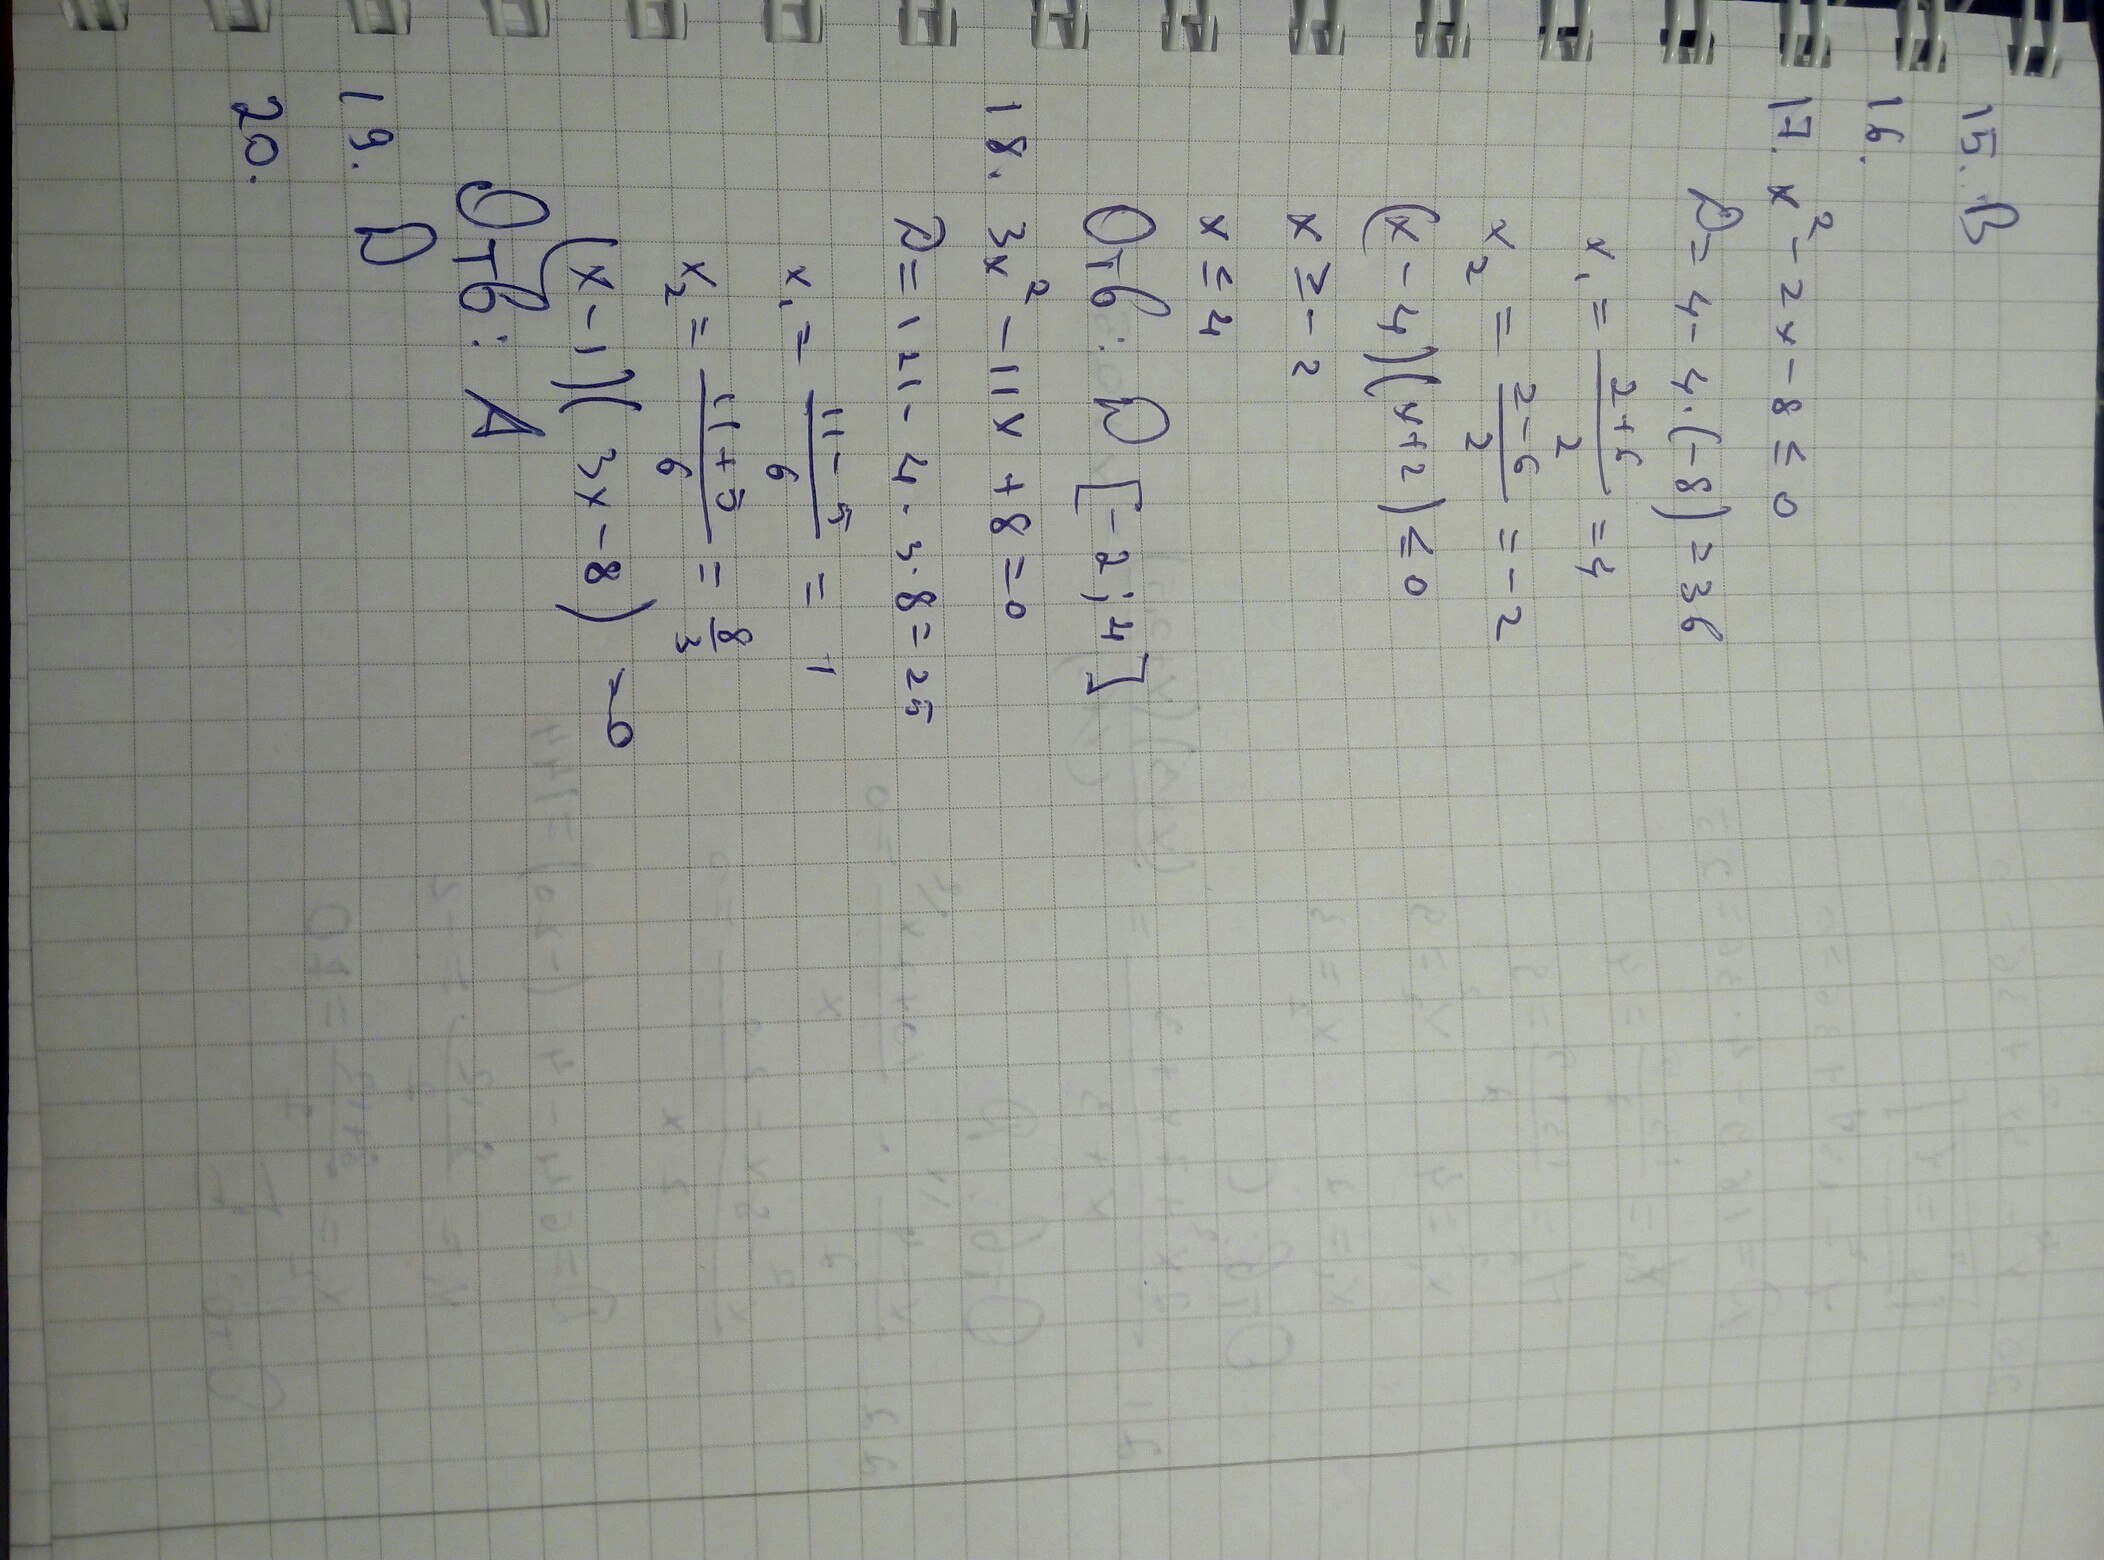 15. В
16.
17. x² - 2x - 8 ≤ 0
D = 4 - 4·(-8) = 36
x₁ = (2+6)/2 = 4
x₂ = (2-6)/2 = -2
(x - 4)(x+2) ≤ 0
x ≥ -2
x ≤ 4
Отв: D [-2; 4]
18. 3x² - 11x + 8 = 0
D = 121 - 4·3·8 = 25
x₁ = (11-5)/6 = 1
x₂ = (11+5)/6 = 8/3
(x - 1)(3x - 8) = 0
Отв: A
19. D
20.